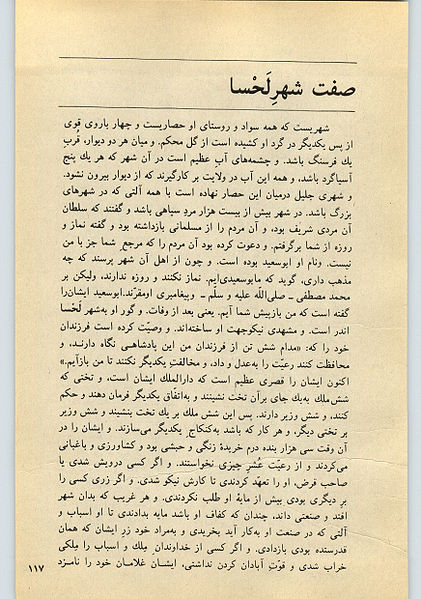 صفت شهرِ لَحْسا
شهریست که همه سواد و روستای او حصاریست و چهار باروی قوی
از پس یکدیگر در گرد او کشیده است از گل محکم. و میان هر دو دیوار، قُربِ
یك فرسنگ باشد. و چشمه‌های آب عظیم است در آن شهر که هر یك پنج
آسیاگرد باشد، و همه این آب در ولایت بر کارگیرند که از دیوار بیرون نشود.
و شهری جلیل درمیان این حصار نهاده است با همه آلتی که در شهرهای
بزرگ باشد. در شهر بیش از بیست هزار مردِ سپاهی باشد و گفتند که سلطان
آن مردی شریف بود، و آن مردم را از مسلمانی بازداشته بود و گفته نماز و
روزه از شما برگرفتم. و دعوت کرده بود آن مردم را که مرجع شما جز با من
نیست. ونام او ابوسعید بوده است. و چون از اهل آن شهر پرسند که چه
مذهب داری، گوید که مابوسعیدی‌ایم. نماز نکنند و روزه ندارند، ولیکن بر
محمد مصطفی ـ صلی‌اللّه علیه و سلّم ـ وپیغامبری اومقرّند.ابوسعید ایشان‌را
گفته است که من بازپیش شما آیم. یعنی بعد از وفات. و گور او به‌شهر لَحْسا
اندر است. و مشهدی نیکوجهت او ساخته‌اند. و وصیّت کرده است فرزندان
خود را که: «مدام شش تن از فرزندان من این پادشاهی نگاه دارند، و
محافظت کنند رعیّت را به‌عدل و داد، و مخالفتِ یکدیگر نکنند تا من بازآیم.»
اکنون ایشان را قصری عظیم است که دارالملك ایشان است، و تختی که
شش‌ملك به‌یك جای برآن تخت نشینند و به‌اتفاق یکدیگر فرمان دهند و حکم
کنند، و شش وزیر دارند. پس این شش ملك بر یك تخت بنشینند و شش وزیر
بر تختی دیگر، و هر کار که باشد به‌کنکاج یکدیگر می‌سازند. و ایشان را در
آن وقت سی هزار بنده درم خریدهٔ زنگی و حبشی بود و کشاورزی و باغبانی
می‌کردند و از رعیّت عُشر چیزی نخواستند. و اگر کسی درویش شدی یا
صاحب قرض، او را تعهّد کردندی تا کارش نیکو شدی. و اگر زری کسی را
بر دیگری بودی بیش از مایهٔ او طلب نکردندی. و هر غریب که بدان شهر
افتد و صنعتی داند، چندان که کفاف او باشد مایه بدادندی تا او اسباب و
آلتی که در صنعت او به‌کار آید بخریدی و به‌مراد خود زرِ ایشان که همان
قدرستده بودی بازدادی. و اگر کسی از خداوندان مِلك و اسباب را مِلکی
خراب شدی و قوّتِ آبادان کردن نداشتی، ایشان غلامان خود را نامزد
۱۱۷